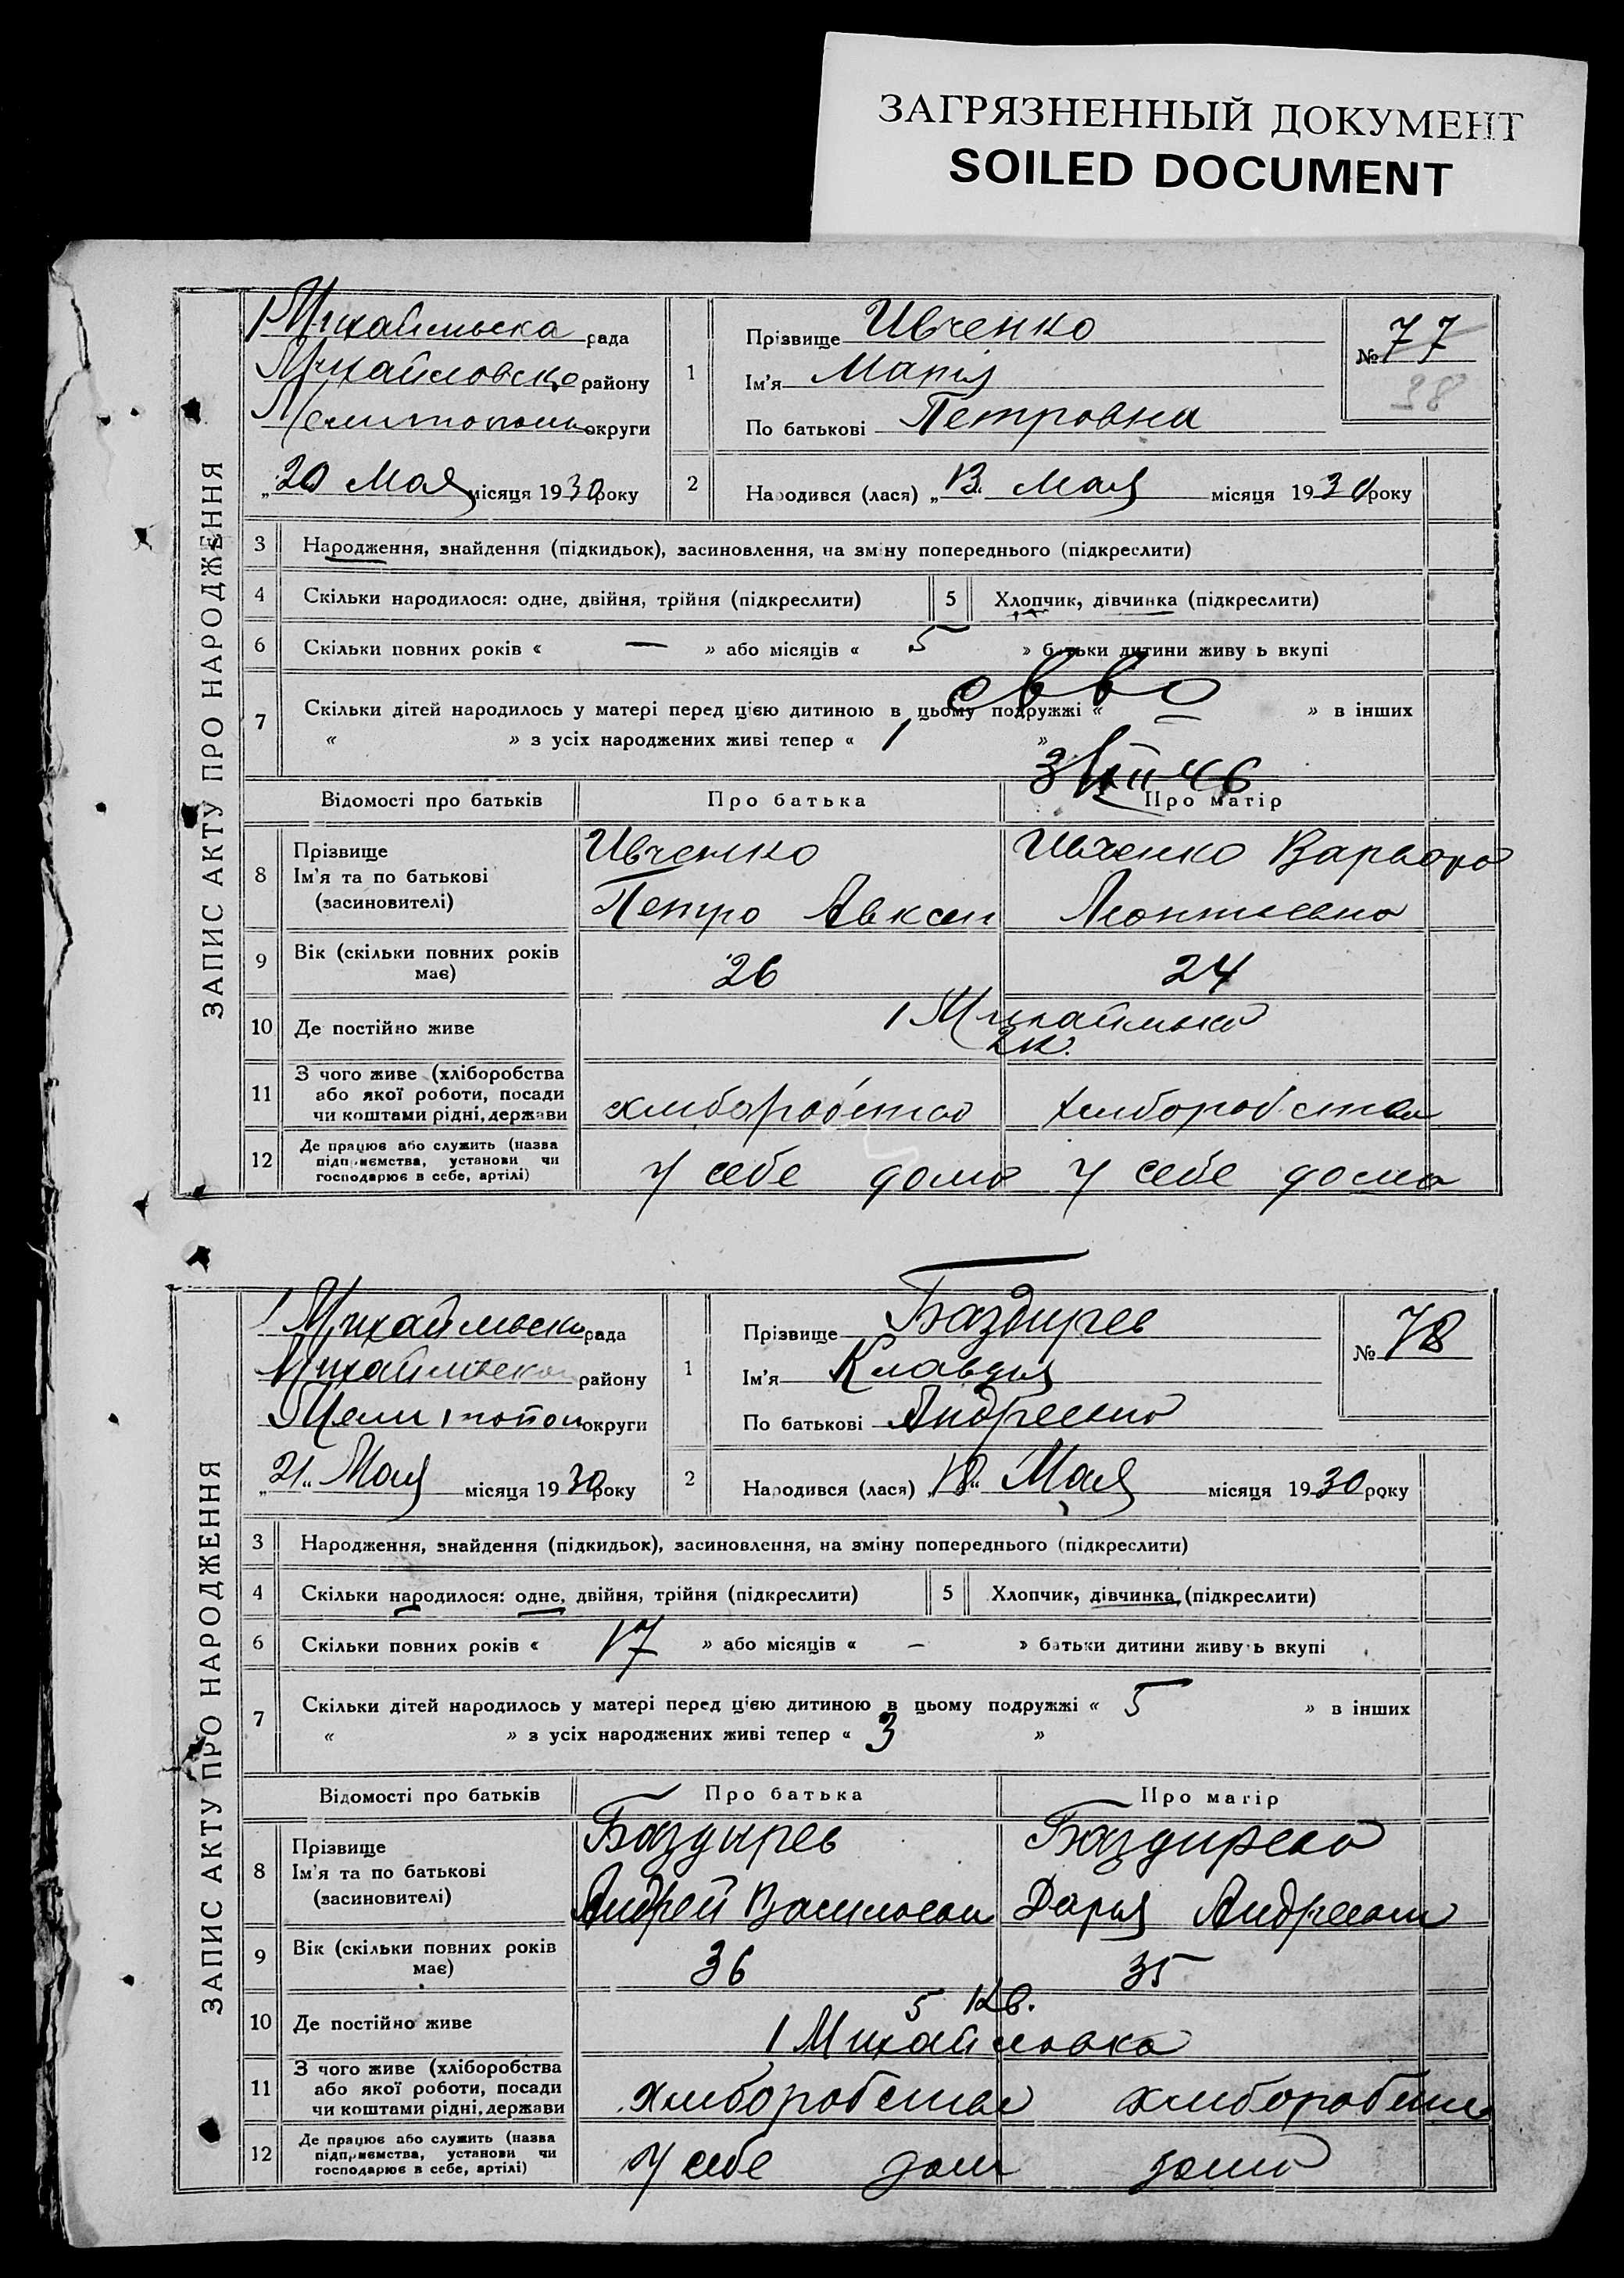 ЗАГРЯЗНЕННЫЙ ДОКУМЕНТ
SOILED DOCUMENT
ЗАПИС АКТУ ПРО НАРОДЖЕННЯ
1 Михайлівська рада
Михайловско району
Мелитополь округи
„20 Мая місяця 1930 року
1
Прізвище Ивченко
Ім'я Марія
По батькові Петровна
№ 77
38
2
Народився (лася) „13. Мая місяця 1930 року
3 Народження, знайдення (підкидьок), засиновлення, на зміну попереднього (підкреслити)
4 Скільки народилося: одне, двійня, трійня (підкреслити)
5 Хлопчик, дівчинка (підкреслити)
6 Скільки повних років « — » або місяців « 5 » батьки дитини живуть вкупі
7 Скільки дітей народилось у матері перед цією дитиною в цьому подружжі « — » в інших
« » з усіх народжених живі тепер « 1 »
Відомості про батьків
Про батька
Про матір
8 Прізвище
Ім'я та по батькові
(засиновителі)
Ивченко
Петро Авксен
Ивченко Варвара
Леонтьевна
9 Вік (скільки повних років
має)
26
24
10 Де постійно живе
1 Михайлівка
2 к.
11 З чого живе (хліборобства
або якої роботи, посади
чи коштами рідні, держави
хліборобство
хліборобство
12 Де працює або служить (назва
підприємства, установи чи
господарює в себе, артілі)
У себе дома
У себе дома
ЗАПИС АКТУ ПРО НАРОДЖЕННЯ
1 Михайлівська рада
Михайлівско району
Мелитопол округи
„21„ Мая місяця 1930 року
1
Прізвище Баздирев
Ім'я Клавдия
По батькові Андреевна
№ 78
2
Народився (лася) „18„ Мая місяця 1930 року
3 Народження, знайдення (підкидьок), засиновлення, на зміну попереднього (підкреслити)
4 Скільки народилося: одне, двійня, трійня (підкреслити)
5 Хлопчик, дівчинка (підкреслити)
6 Скільки повних років « 17 » або місяців « – » батьки дитини живуть вкупі
7 Скільки дітей народилось у матері перед цією дитиною в цьому подружжі « 5 » в інших
« » з усіх народжених живі тепер « 3 »
Відомості про батьків
Про батька
Про матір
8 Прізвище
Ім'я та по батькові
(засиновителі)
Баздырев
Андрей Васильеви
Баздирева
Дарья Андреевн
9 Вік (скільки повних років
має)
36
35
10 Де постійно живе
5 кв.
1 Михайловка
11 З чого живе (хліборобства
або якої роботи, посади
чи коштами рідні, держави
хліборобства
хліборобств
12 Де працює або служить (назва
підприємства, установи чи
господарює в себе, артілі)
У себе дома
дома